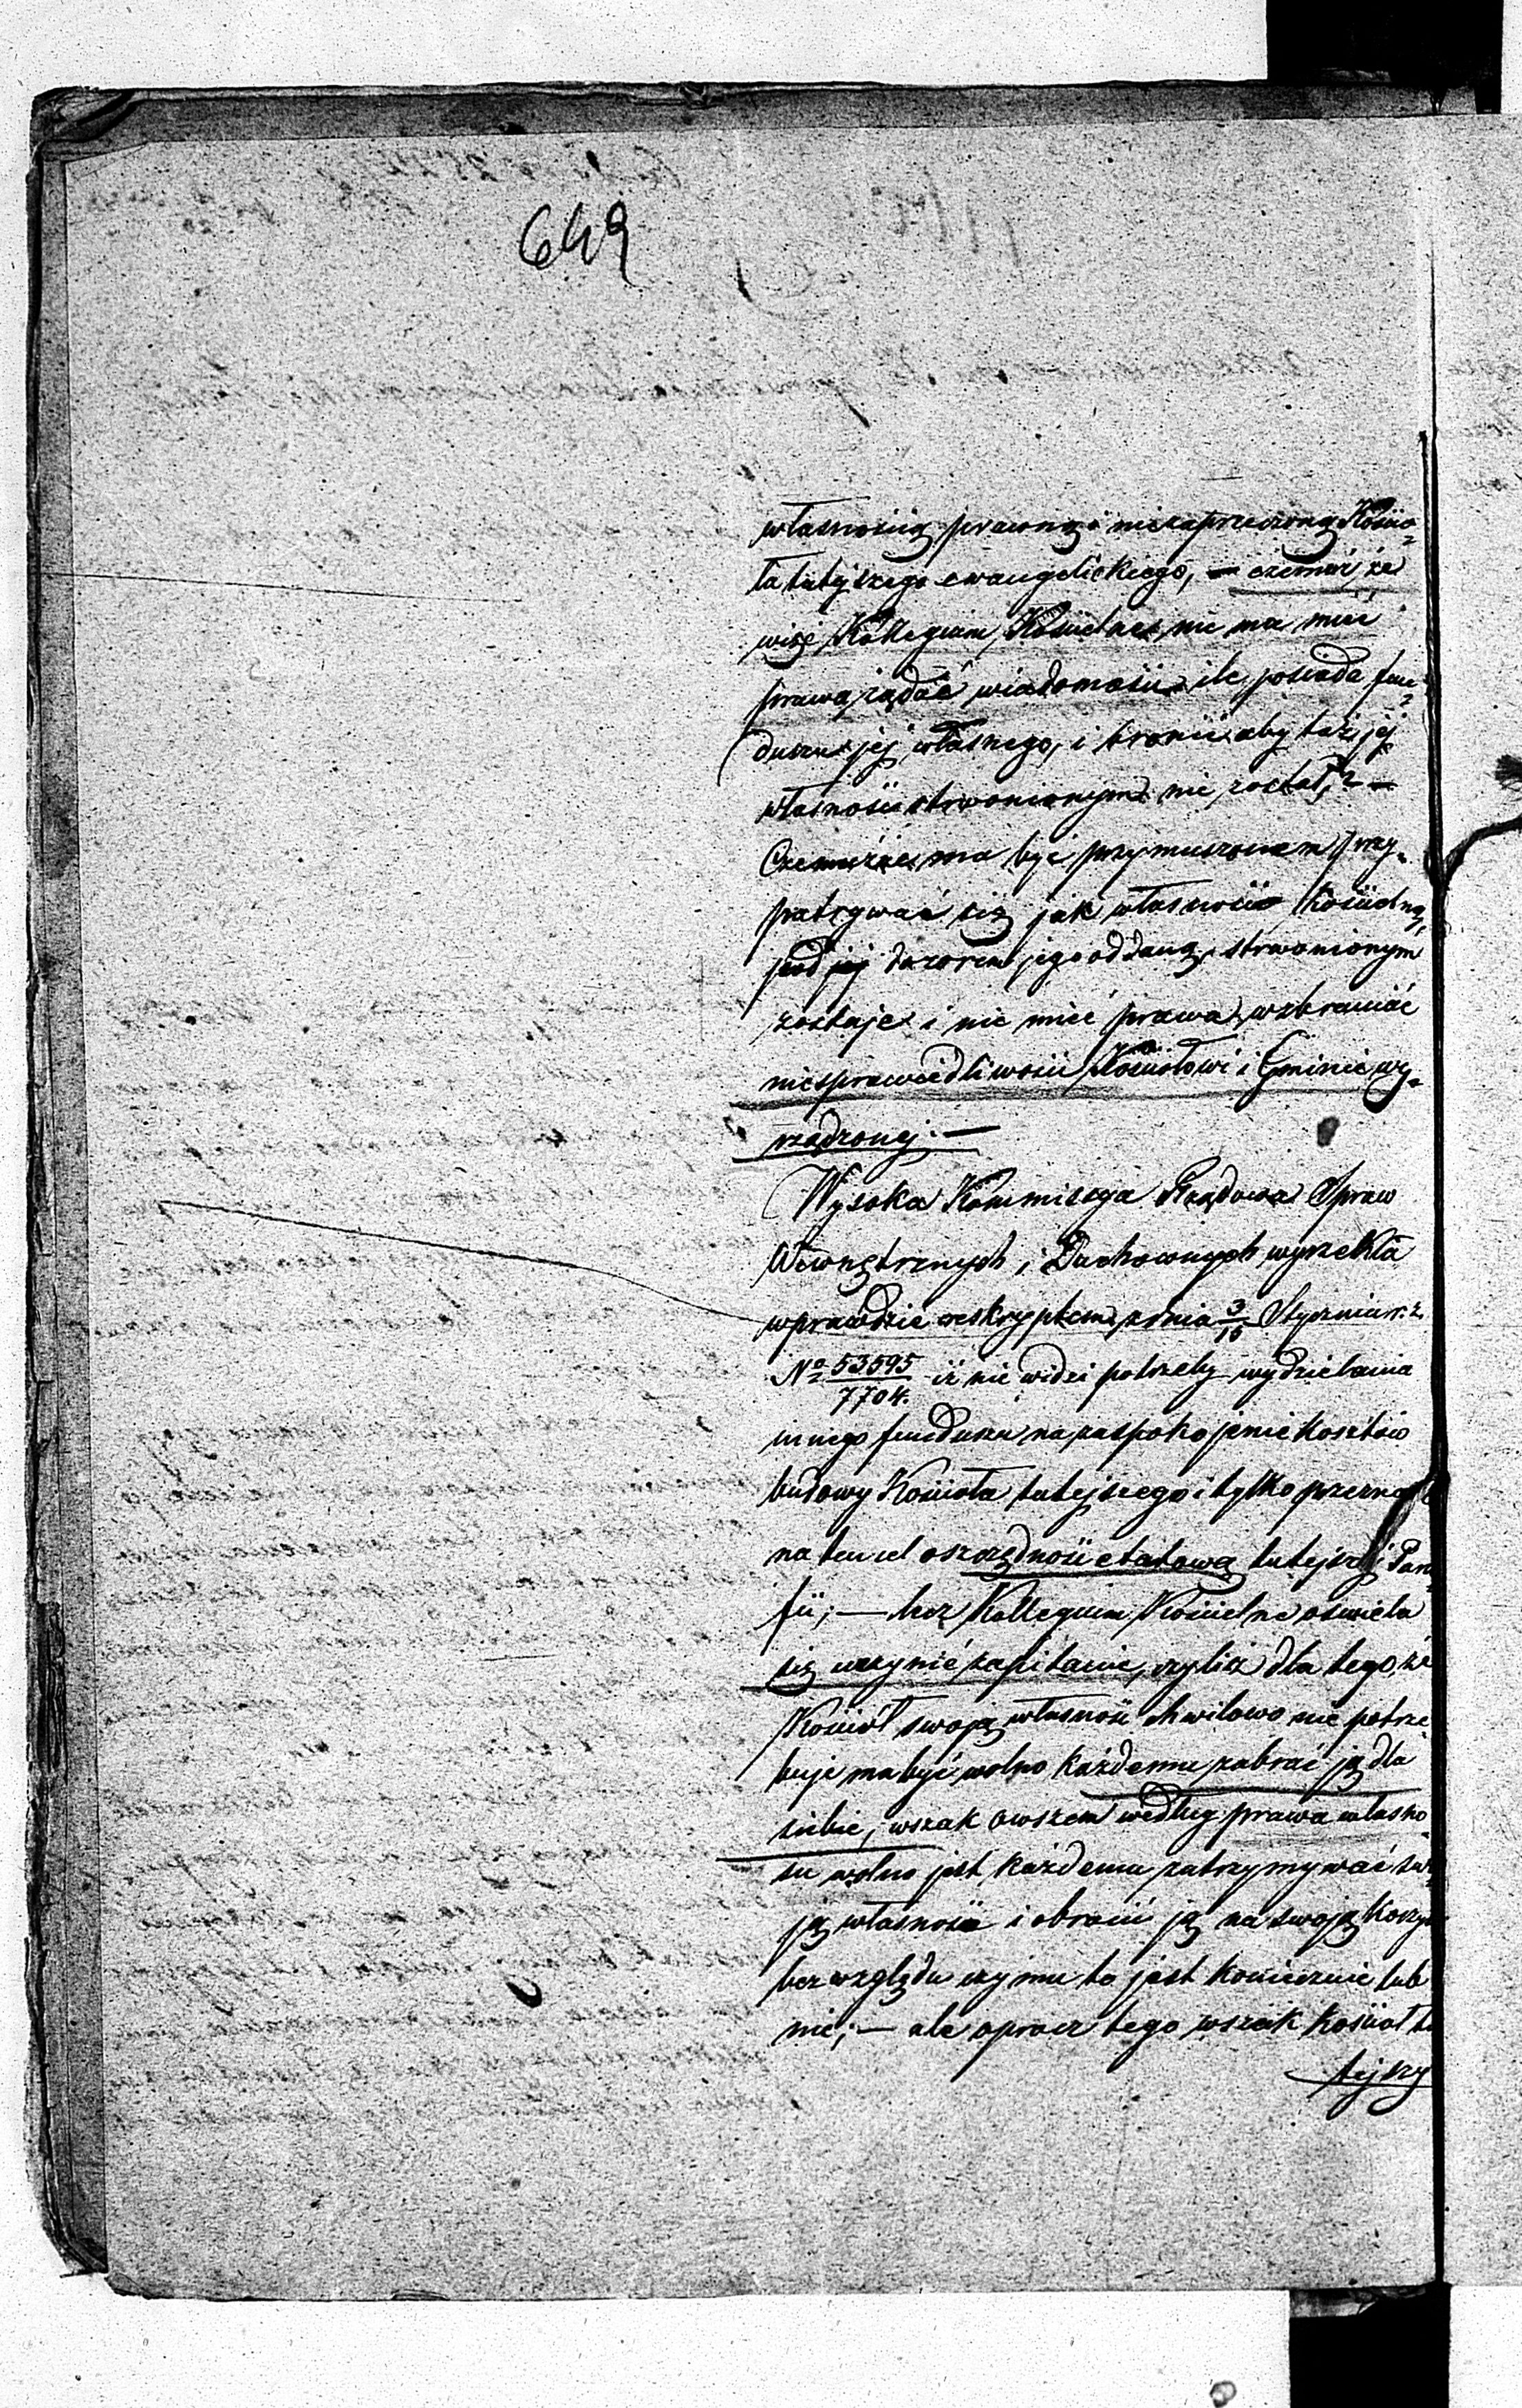 649
własnością prawną i niezaprzeczoną Kościo=
ła tutejszego ewangelickiego, — czemuż, że
więc Kollegium Kościelne nie ma mieć
prawa żądać wiadomości ile posiada fun=
duszu jej własnego, i bronić aby taż jej
własność strwonionym nie został? —
Czemuż że ma być przymuszonem przy=
patrywać się jak własność Kościelna
pod jej dozorem jego oddana, strwonionym
zostaje i nie mieć prawa wzbraniać
niesprawiedliwości Kościołowi i Gminie wy=
rządzonej. —
Wysoka Kommissya Rządowa Spraw
Wewnętrznych i Duchownych wyrzekła
wprawdzie reskryptem z dnia 3/15 Stycznia r. z.
No 53595/7704. iż nie widzi potrzeby wydzielania
innego funduszu na zaspokojenie kosztów
budowy Kościoła tutejszego i tylko
na ten cel oszczędność etatową tutejszej Para=
fii; — lecz Kollegium Kościelne ośmiela
się uczynić zapitanie, czyliż dla tego, że
Kościół swoją własność chwilowo nie potrze
buje ma być wolno każdemu zabrać ją dla
siebie, wszak owszem według prawa własno=
ści wolno jest każdemu zatrzymywać swo=
ją własność i obrócić ją na swoją korzyś
bez względu czy mu to jest koniecznie lub
nie; — ale oprócz tego wszak kościół tu
tejszy